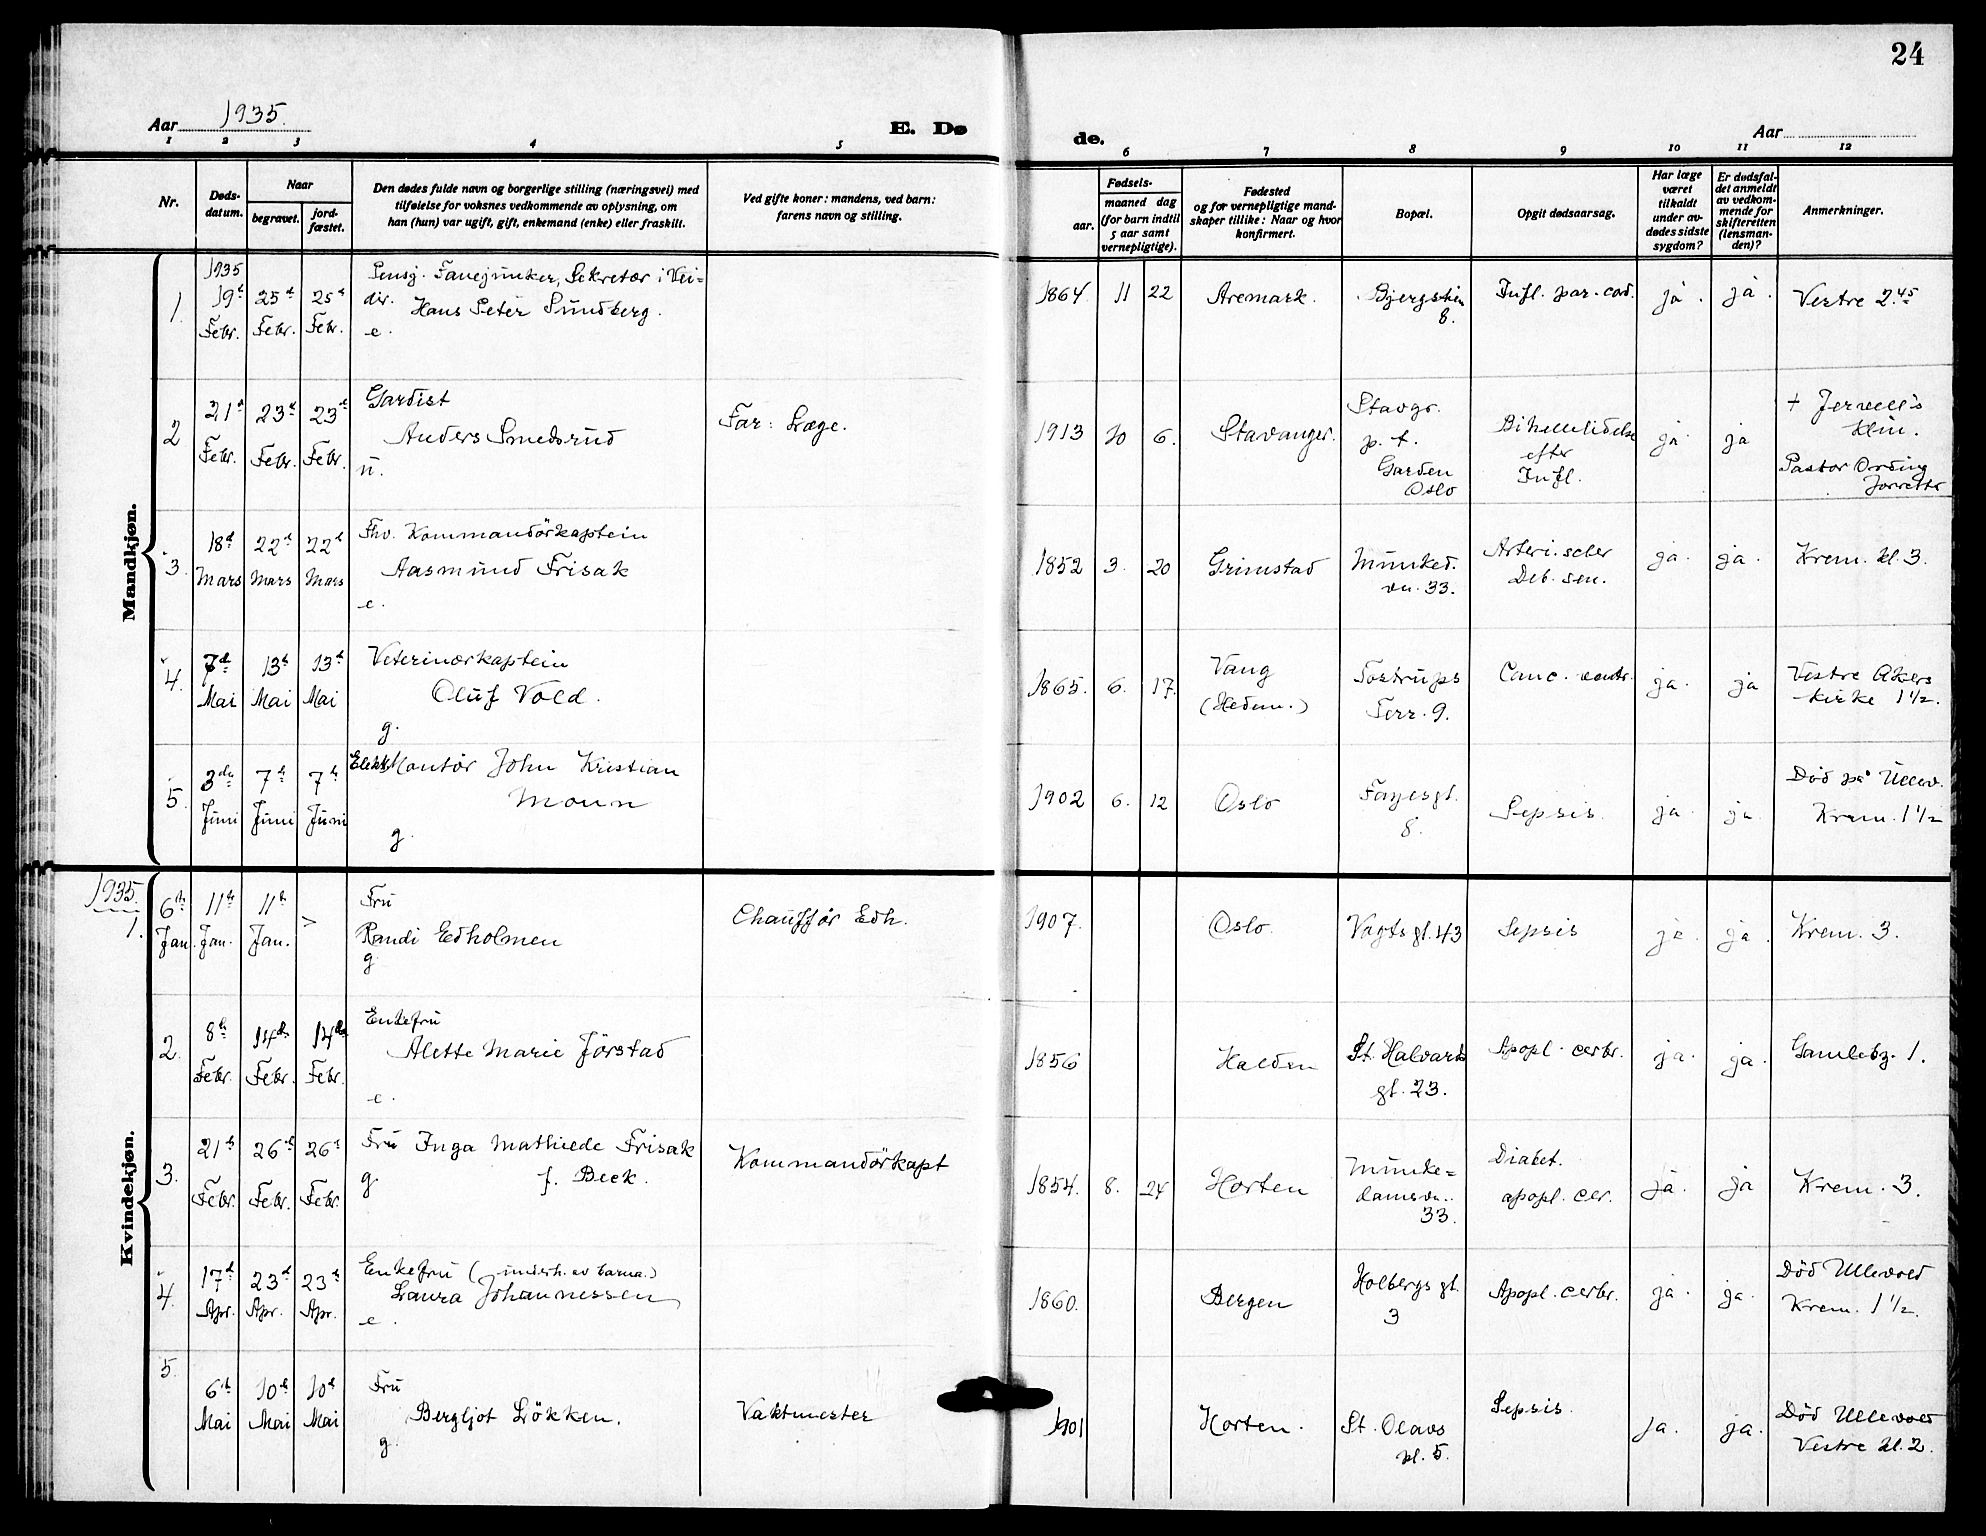 24
Aar 1935.
E. Dø
de.
Aar
1 2 3 4 5 6 7 8 9 10 11 12
Nr.
Døds-
datum.
Naar
begravet.
jord-
fæstet.
Den dødes fulde navn og borgerlige stilling (næringsvei) med
tilføielse for voksnes vedkommende av oplysning, om
han (hun) var ugift, gift, enkemand (enke) eller fraskilt.
Ved gifte koner: mandens, ved barn:
farens navn og stilling.
Fødsels-
aar.
maaned dag
(for barn indtil
5 aar samt
vernepligtige).
Fødested
og for vernepligtige mand-
skaper tillike: Naar og hvor
konfirmert.
Bopæl.
Opgit dødsaarsag.
Har læge
været
tilkaldt
under av-
dødes sidste
sygdom?
Er dødsfal-
det anmeldt
av vedkom-
mende for
skifteretten
(lensman-
den)?
Anmerkninger.
Mandkjøn.
1.
1935
19d Febr.
25d Febr.
25d Febr.
Pensj. Fanejunker, Sekretær i Vei-
dir. Hans Peter Sundberg.
e.
1864 11 22
Aremark.
Bjergstien
8.
Infl. par. cord.
ja.
ja.
Vestre 2.45
2
21d Febr.
23d Febr.
23d Febr.
Gardist
Anders Smedsrud
u.
Far: Læge.
1913 10 6.
Stavanger.
Stavgr.
p. t.
Garden
Oslo
Bihulelidelse
efter
Infl.
ja
ja
+ Jervell's
klin.
Pastor Ording
forrettr
3.
18d Mars
22d Mars
22d Mars
Fhv. Kommandörkaptein
Aasmund Frisak
e.
1852 3. 20
Grimstad
Munked.
vn. 33.
Arteri. scler
Deb. sen.
ja.
ja.
Krem. kl. 3.
4.
7d Mai
13d Mai
13d Mai
Veterinærkaptein
Oluf Vold.
g.
1865. 6. 17.
Vang
(Hedem.)
Tostrups
Terr. 9.
Canc. ventr.
ja.
ja
Vestre Akers
kirke 1½.
5.
3de Juni
7d Juni
7d Juni
Elektr. Montør John Kristian
Moun
g.
1902 6. 12
Oslo
Fayesgt.
8.
Sepsis.
ja.
ja.
Död på Ullev.
Krem. 1½
Kvindekjøn.
1935.
1.
6th Jan.
11th Jan.
11th Jan.
>
Fru
Randi Edholmen
g.
Chauffør Edh.
1907.
Oslo.
Vogtsgt. 43
Sepsis
ja.
ja.
Krem. 3.
2.
8d Febr.
14de Febr.
14de Febr.
Enkefru
Alette Marie Jörstad
e.
1856
Halden
St. Halvards
gt. 23.
Apopl. cerbr.
ja.
ja.
Gamleby. 1.
3.
21d Febr.
26d Febr.
26d Febr.
Fru Inga Mathilde Frisak
g. f. Beck.
Kommandörkapt
1854. 8. 24
Horten
Munke-
damsvn.
33.
Diabet.
apopl. cer.
ja.
ja
Krem. 3.
4.
17d Apr.
23d Apr.
23d Apr.
Enkefru (underh. av barna.)
Laura Johannessen
e.
1860.
Bergen
Holbergs gt.
3
Apopl. cerbr.
ja.
ja.
Död Ullevold
Krem. 1½.
5.
6d Mai
10d Mai
10d Mai
Fru
Bergljot Lökken.
g.
Vaktmester
1901
Horten.
St. Olavs
pl. 5.
Sepsis.
ja.
ja.
Död Ullevold
Vestre kl. 2.